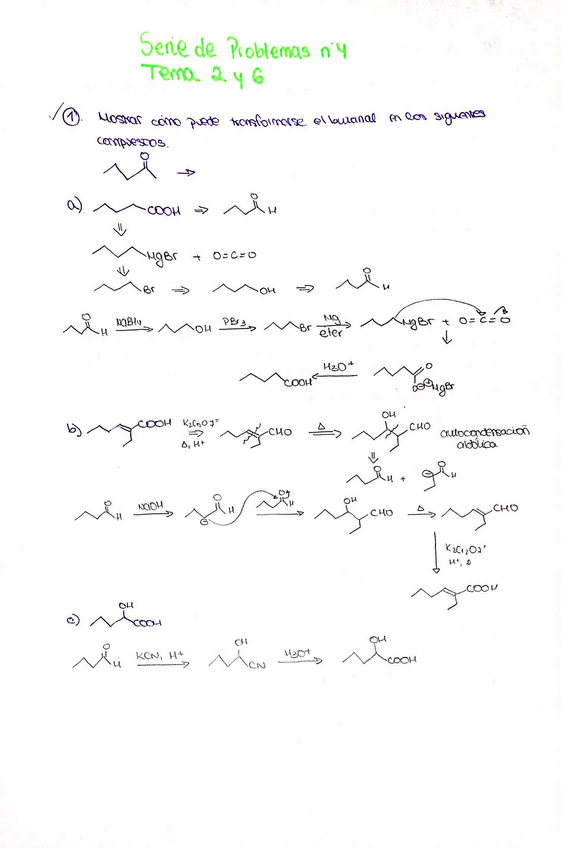 Serie de Problemas nº4
Tema 2 y 6
① Mostrar cómo puede transformarse el butanal en los siguientes
compuestos.
O
a) COOH ⇒ O H
MgBr + O=C=O
Br ⇒ OH ⇒ O H
O H NaBH4 OH PBr3 Br Mg eter MgBr + O=C=O
COOH H3O+ O O⊖ ⊕MgBr
b) COOH K2Cr2O7= Δ, H+ CHO Δ OH CHO autocondensación
aldólica
O H + ⊖ O H
O H NaOH ⊖ O H O OH CHO Δ CHO
K2Cr2O7=
H+, Δ
COOH
c) OH COOH
O H KCN, H+ OH CN H3O+ OH COOH